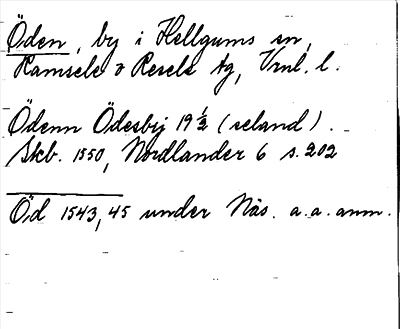 Öden, by i Hellgums sn,
Ramsele o Resele tg, Vrnl. l.
Ödenn Ödesbij 19 ½ (seland).
Skb. 1550, Nordlander 6 s. 202
Öd 1543, 45 under Näs. a.a. anm.